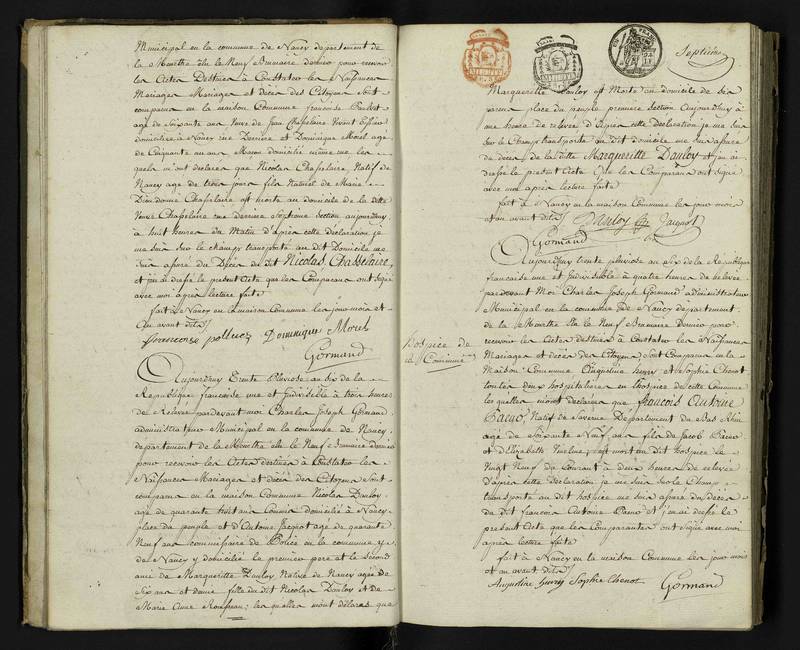 Municipal en la commune de Nancy département de
la Meurthe élu le Neuf Brumaire dernier pour recevoir
les Actes Destinés à Constater les Naissances
Mariages et décès des Citoyens sont
comparus en la maison Commune francoise
age de soixante ans veuve de Jean Chasselaire
domiciliée à Nancy rue et Dominique Morel agé
de Cinquante ans Maçon domicilié même rue les
quels m'ont déclarés que Nicolas Chasselaire Natif de
Nancy age de trois jours fils Naturel de Marie
Dieudonné Chasselaire est morte au domicile de la ditte
Veuve Chasselaire rue Septieme Section aujourdhuy
à huit heures du Matin d'après cette déclaration je
me suis sur le champs transporté au dit Domicile me
suis assuré du Décès du dit Nicolas Chasselaire,
et j'en ai dressé le present Acte que les Comparans ont Signé
avec moi après lecture faite
fait à Nancy en la maison Commune les jour mois et
an avant dits
Dominique Morel
Gormand
Aujourdhuy Trente Pluviose an Six de la
Republique francoise une et Indivisible à trois heures
de Relevée pardevant moi Charles Joseph Gormand
administrateur Municipal en la commune de Nancy
departement de la Meurthe élu le Neuf Brumaire dernier
pour recevoir les Actes destinés à Constater les
Naissances Mariages et décès des Citoyens sont
comparus en la maison Commune Nicolas Dauloy
age de quarante huit ans domicilié à Nancy
place du peuple et d'Antoine Jacquot agé de quarante
Neuf ans commissaire de Police en la commune
de Nancy y domicilié le premier pere et le second
ami de Margueritte Dauloy Native de Nancy agée de
Six ans et demie fille du dit Nicolas Dauloy et de
Marie Anne ; les quelles m'ont déclarés que
Septieme
Margueritte Dauloy est Morte au domicile de ses
parens place du peuple premiere section aujourdhuy à
une heure de relevée d'après cette declaration je me suis
sur le Champ transporté au dit domicile me suis assuré
du decès de la ditte Margueritte Dauloy et j'en ai
dressé le present Acte que les Comparans ont Signé
avec moi après lecture faite
fait à Nancy en la maison Commune les jour mois
et an avant dits Dauloy Jacquot
Gormand
Aujourdhuy trente pluviose an Six de la Republique
francaise une et Indivisible à quatre heures de relevée
pardevant Moi Charles Joseph Gormand administrateur
Municipal en la commune De Nancy departement
de la Meurthe élu le Neuf Brumaire dernier pour
recevoir les Actes destinés à Constater les Naissances
Mariages et décès des Citoyens sont Comparus en la
Maison Commune Augustine henry et Sophie Chenot
toutes deux hospitalieres en l'hospice de cette Commune
les quelles m'ont declarées que françois Antoine
natif de Saverne Departement du Bas Rhin
agé de Soixante Neuf ans fils de Jacob
et d'Elizabeth est mort au dit hospice le
Vingt Neuf du Courant à deux heures de relevée
d'après cette déclaration je me suis sur le Champ
transporté au dit hospice me suis assuré du Décès
du dit francois Antoine et j'en ai dressé le
present Acte que les Comparantes ont Signé avec moi
après lecture faite
fait à Nancy en la maison Commune les jour mois
et an avant dits
Augustine henry Sophie Chenot Gormand
hospice de
la Commune